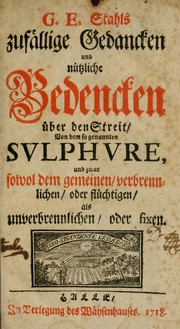 G. E. Stahls
zufällige Gedancken
und
nützliche
Bedencken
über den Streit/
Von dem so genannten
SVLPHVRE,
und zwar
sowol dem gemeinen/ verbrenn-
lichen/ oder flüchtigen/
als
unverbrennlichen/ oder fixen.
HALLE,
In Verlegung des Wäysenhauses. 1718.